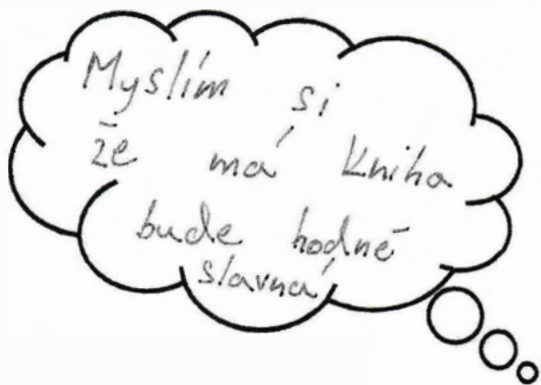 Myslím si
že má kniha
bude hodně
slavná